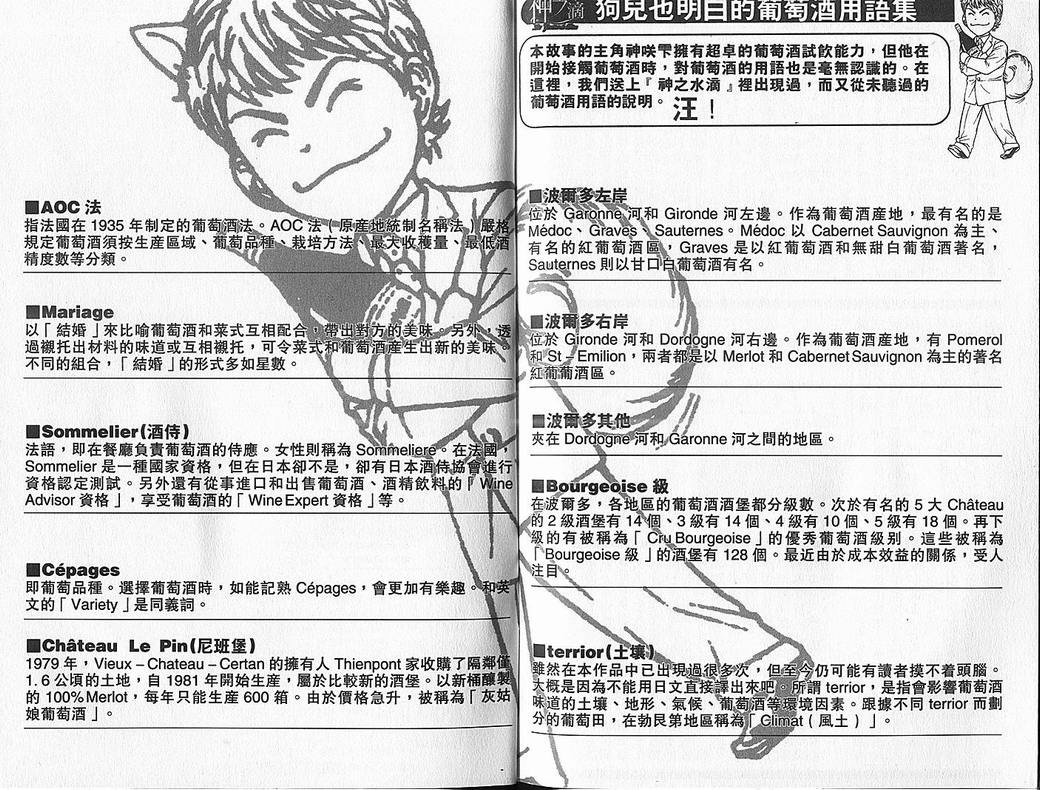 神之滴 狗兒也明白的葡萄酒用語集
本故事的主角神咲雫擁有超卓的葡萄酒試飲能力，但他在
開始接觸葡萄酒時，對葡萄酒的用語也是毫無認識的。在
這裡，我們送上『神之水滴』裡出現過，而又從未聽過的
葡萄酒用語的說明。汪！
■波爾多左岸
位於 Garonne 河和 Gironde 河左邊。作為葡萄酒產地，最有名的是
Médoc、Graves、Sauternes。Médoc 以 Cabernet Sauvignon 為主、
有名的紅葡萄酒區，Graves 是以紅葡萄酒和無甜白葡萄酒著名，
Sauternes 則以甘口白葡萄酒有名。
■波爾多右岸
位於 Gironde 河和 Dordogne 河右邊。作為葡萄酒產地，有 Pomerol
和 St–Emilion，兩者都是以 Merlot 和 Cabernet Sauvignon 為主的著名
紅葡萄酒區。
■波爾多其他
夾在 Dordogne 河和 Garonne 河之間的地區。
■Bourgeoise 級
在波爾多，各地區的葡萄酒酒堡都分級數。次於有名的 5 大 Château
的 2 級酒堡有 14 個、3 級有 14 個、4 級有 10 個、5 級有 18 個。再下
級的有被稱為「Cru Bourgeoise」的優秀葡萄酒級別。這些被稱為
「Bourgeoise 級」的酒堡有 128 個。最近由於成本效益的關係，受人
注目。
■terrior(土壤)
雖然在本作品中已出現過很多次，但至今仍可能有讀者摸不着頭腦。
大概是因為不能用日文直接譯出來吧。所謂 terrior，是指會影響葡萄酒
味道的土壤、地形、氣候、葡萄酒等環境因素。跟據不同 terrior 而劃
分的葡萄田，在勃艮第地區稱為「Climat（風土）」。
■AOC 法
指法國在 1935 年制定的葡萄酒法。AOC 法（原產地統制名稱法）嚴格
規定葡萄酒須按生產區域、葡萄品種、栽培方法、最大收穫量、最低酒
精度數等分類。
■Mariage
以「結婚」來比喻葡萄酒和菜式互相配合，帶出對方的美味。另外，透
過襯托出材料的味道或互相襯托，可令菜式和葡萄酒產生出新的美味。
不同的組合，「結婚」的形式多如星數。
■Sommelier(酒侍)
法語，即在餐廳負責葡萄酒的侍應。女性則稱為 Sommeliere。在法國，
Sommelier 是一種國家資格，但在日本卻不是，卻有日本酒侍協會進行
資格認定測試。另外還有從事進口和出售葡萄酒、酒精飲料的「Wine
Advisor 資格」，享受葡萄酒的「Wine Expert 資格」等。
■Cépages
即葡萄品種。選擇葡萄酒時，如能記熟 Cépages，會更加有樂趣。和英
文的「Variety」是同義詞。
■Château Le Pin(尼班堡)
1979 年，Vieux–Chateau–Certan 的擁有人 Thienpont 家收購了隔鄰僅
1.6 公頃的土地，自 1981 年開始生產，屬於比較新的酒堡。以新桶釀製
的 100%Merlot，每年只能生產 600 箱。由於價格急升，被稱為「灰姑
娘葡萄酒」。